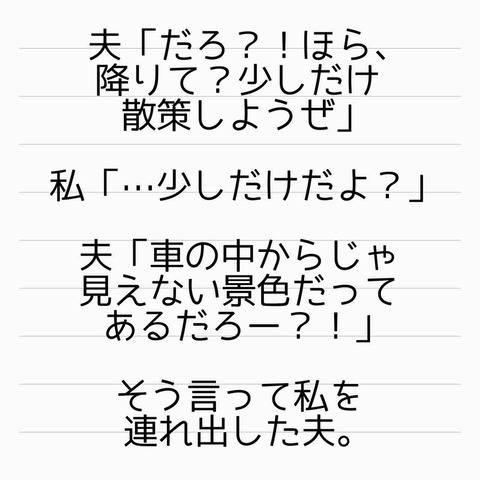 夫「だろ？！ほら、
降りて？少しだけ
散策しようぜ」
私「…少しだけだよ？」
夫「車の中からじゃ
見えない景色だって
あるだろー？！」
そう言って私を
連れ出した夫。